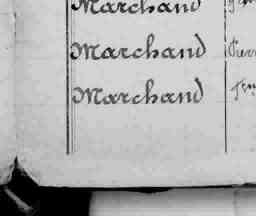 Marchand
Marchand
Marchand